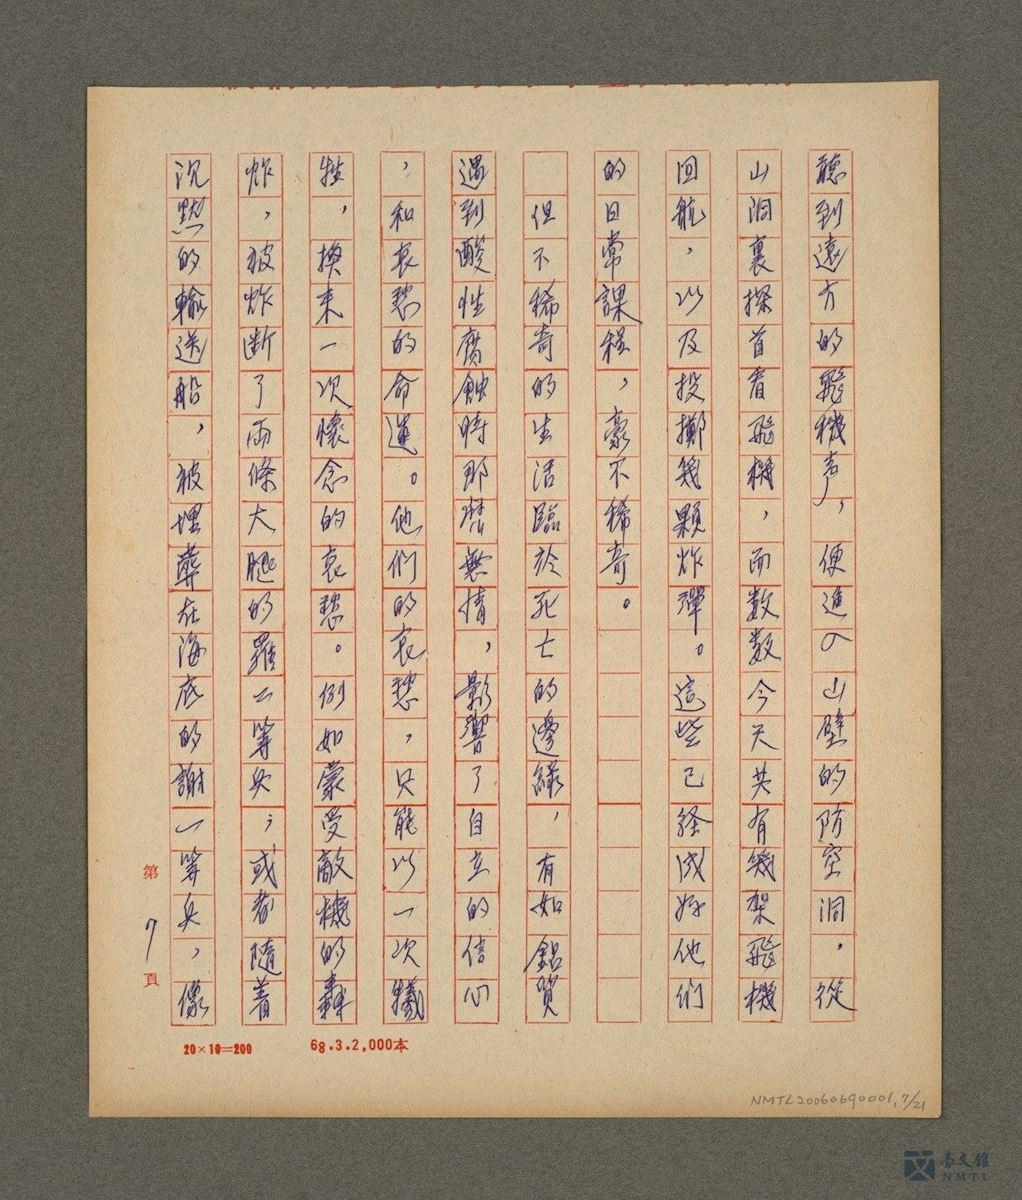 聽到遠方的飛機声，便進入山壁的防空洞，從
山洞裏探首看飛機，而数数今天共有幾架飛機
回航，以及投擲幾顆炸彈。這些已経成好他们
的日常課程，豪不稀奇。
但不稀奇的生活臨於死亡的邊緣，有如鋁質
遇到酸性腐蝕時那麽無情，影響了自立的信心
，和哀愁的命運。他們的哀愁，只能以一次犧
牲，換来一次懷念的哀愁。例如蒙受敵機的轟
炸，被炸断了両條大腿的羅二等兵；或者隨着
沉默的輸送船，被埋葬在海底的謝一等兵，像
第7頁
20×10=200 68.3.2,000本
NMTL20060690001,7/21
台文館
NMTL